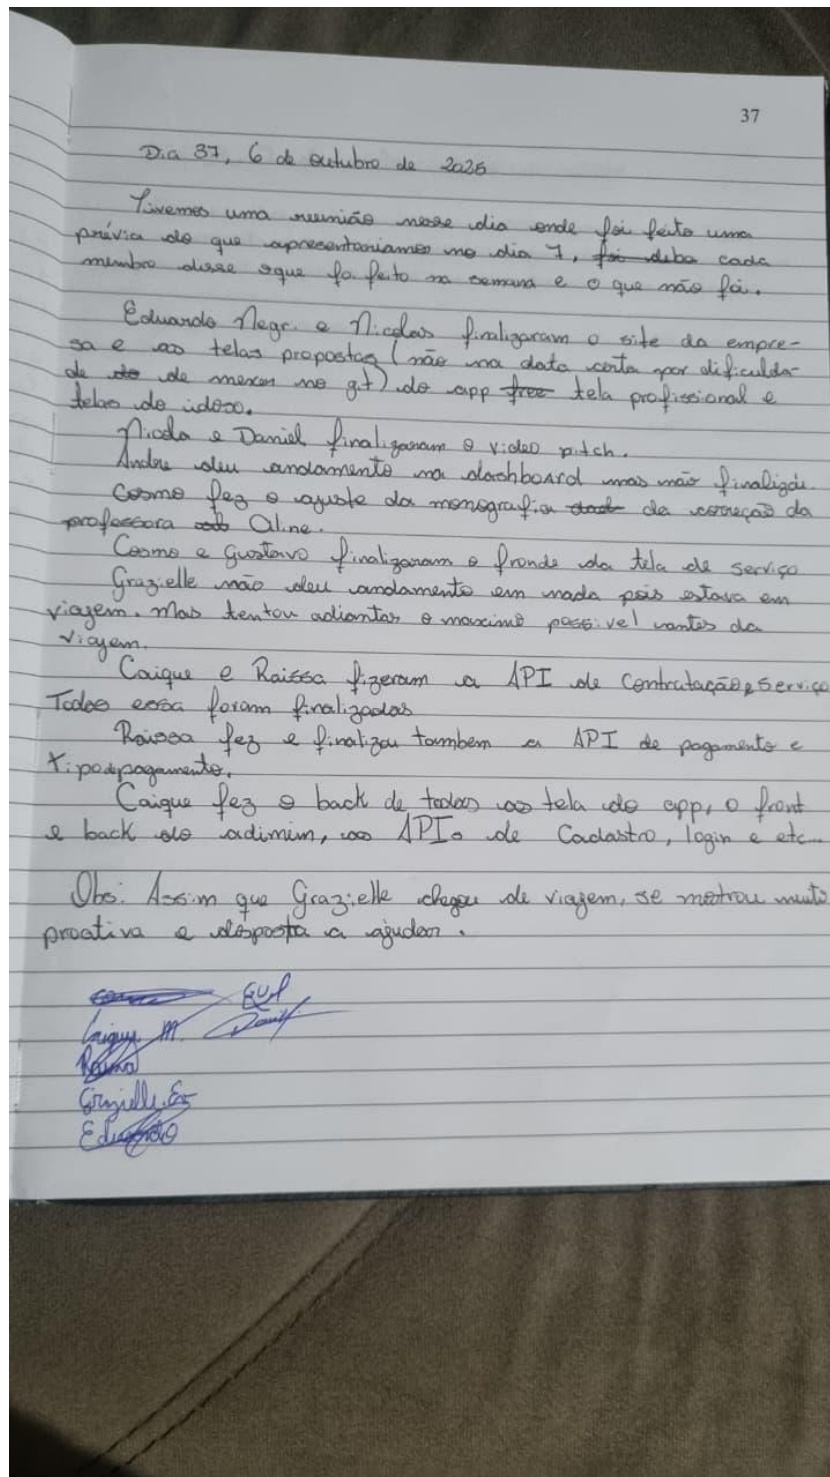 37
Dia 37, 6 de outubro de 2025
Tivemos uma reunião nesse dia onde foi feito uma
prévia do que apresentariamos no dia 7, cada
membro disse oque foi feito na semana e o que não foi.
Eduardo Negr. e Nicolas finalizaram o site da empre-
sa e as telas propostas (não na data certa por dificulda-
de de mexer no git) do app tela profissional e
telas do idoso.
Nicolas e Daniel finalizaram o video pitch.
Andre deu andamento na dashboard mas não finalizou.
Cosmo fez o ajuste da monografia da correção da
professora Aline.
Cosmo e Gustavo finalizaram o fronde da tela de serviço
Grazielle não deu andamento em nada pois estava em
viagem. Mas tentou adiantar o maximo possivel antes da
viagem.
Caique e Raissa fizeram a API de Contratação e Serviço
Todas essa foram finalizadas
Raissa fez e finalizou tambem a API de pagamento e
tipodpagamento.
Caique fez o back de todas as tela do app, o front
e back do adimim, as APIs de Cadastro, login e etc...
Obs: Assim que Grazielle chegou de viagem, se mostrou muito
proativa e disposta a ajudar.
Caique M.
Raissa
Grazielle
Eduardo